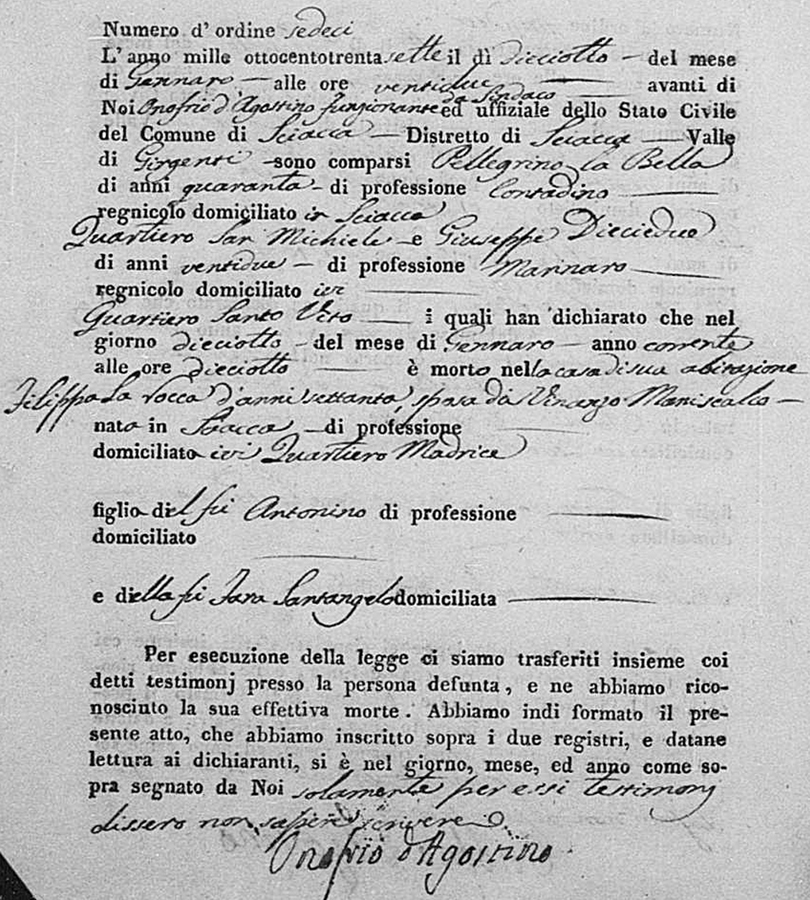 Numero d' ordine sedeci
L' anno mille ottocentotrentasette il dì dieciotto del mese
di Gennaro alle ore ventidue avanti di
Noi Onofrio d'Agostino funzionante da Sindaco ed uffiziale dello Stato Civile
del Comune di Sciacca Distretto di Sciacca Valle
di Girgenti sono comparsi Pellegrino la Bella
di anni quaranta di professione Contadino
regnicolo domiciliato in Sciacca
Quartiero San Michiele e Giuseppe Dieciedue
di anni ventidue di professione Marinaro
regnicolo domiciliato ivi
Quartiero Santo Vito i quali han dichiarato che nel
giorno dieciotto del mese di Gennaro anno corrente
alle ore dieciotto è morto nella casa di sua abitazione
Filippa La Rocca d'anni settanta, sposa di Vinanzo Maniscalco
nata in Sciacca di professione
domiciliata ivi Quartiero Madrice
figlia del fu Antonino di professione
domiciliato
e della fu Santangelo domiciliata
Per esecuzione della legge ci siamo trasferiti insieme coi
detti testimonj presso la persona defunta, e ne abbiamo rico-
nosciuto la sua effettiva morte. Abbiamo indi formato il pre-
sente atto, che abbiamo inscritto sopra i due registri, e datane
lettura ai dichiaranti, si è nel giorno, mese, ed anno come so-
pra segnato da Noi solamente per essi testimonj
dissero non sapere scrivere
Onofrio d'Agostino